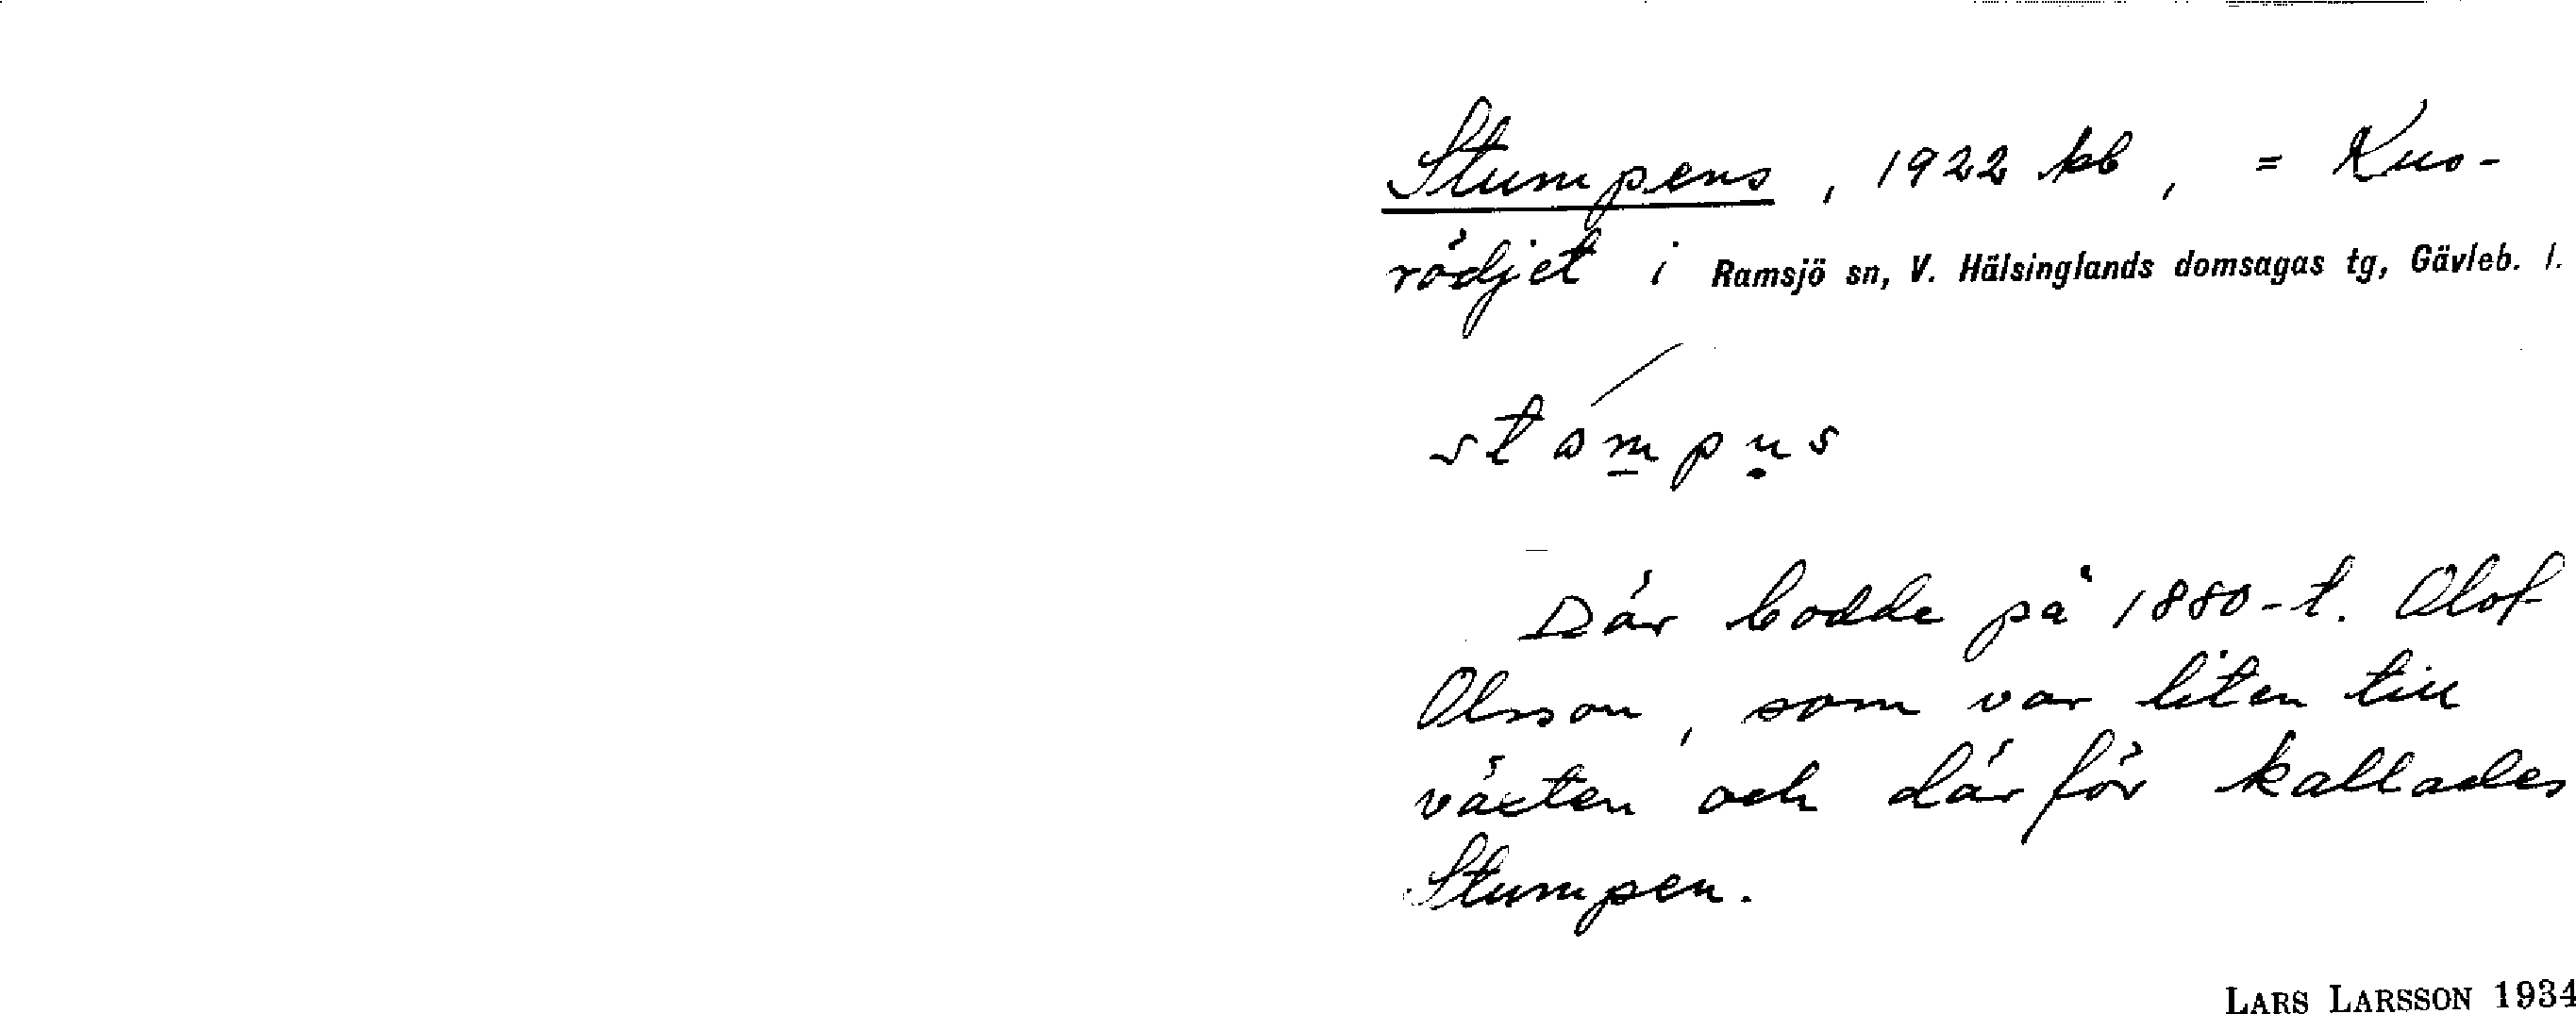 Stumpens, 1922 kb, = Kus-
rödjet i Ramsjö sn, V. Hälsinglands domsagas tg, Gävleb. l.
stómpns
Där bodde på 1880-t. Olof
Olsson, som var liten till
växten och därför kallades
Stumpen.
LARS LARSSON 1934